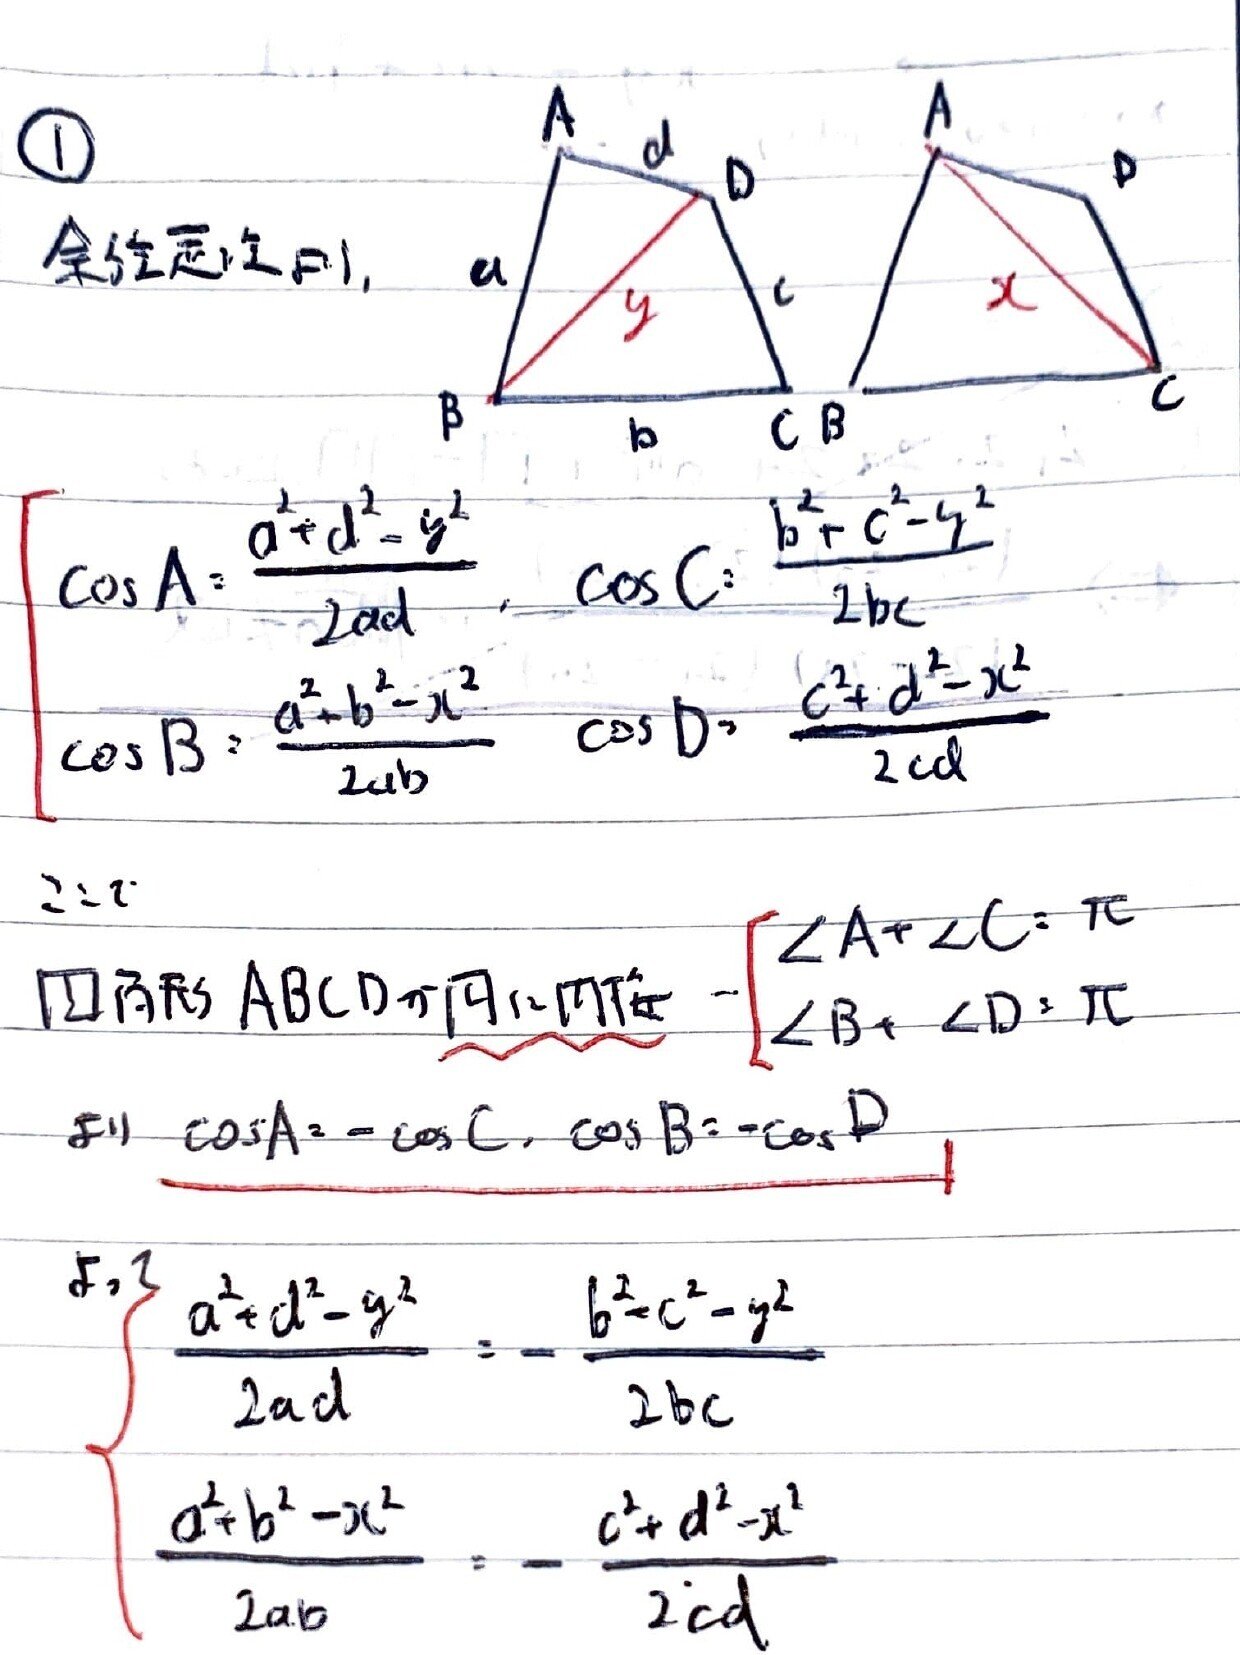 ①
A d D A D
余弦定理より, a y c x
B b C B C
cosA = (a²+d²-y²)/(2ad), cosC = (b²+c²-y²)/(2bc)
cosB = (a²+b²-x²)/(2ab) cosD = (c²+d²-x²)/(2cd)
ここで
∠A+∠C=π
四角形ABCDが円に内接 -
∠B+∠D=π
より cosA=-cosC, cosB=-cosD
よって
(a²+d²-y²)/(2ad) = - (b²+c²-y²)/(2bc)
(a²+b²-x²)/(2ab) = - (c²+d²-x²)/(2cd)